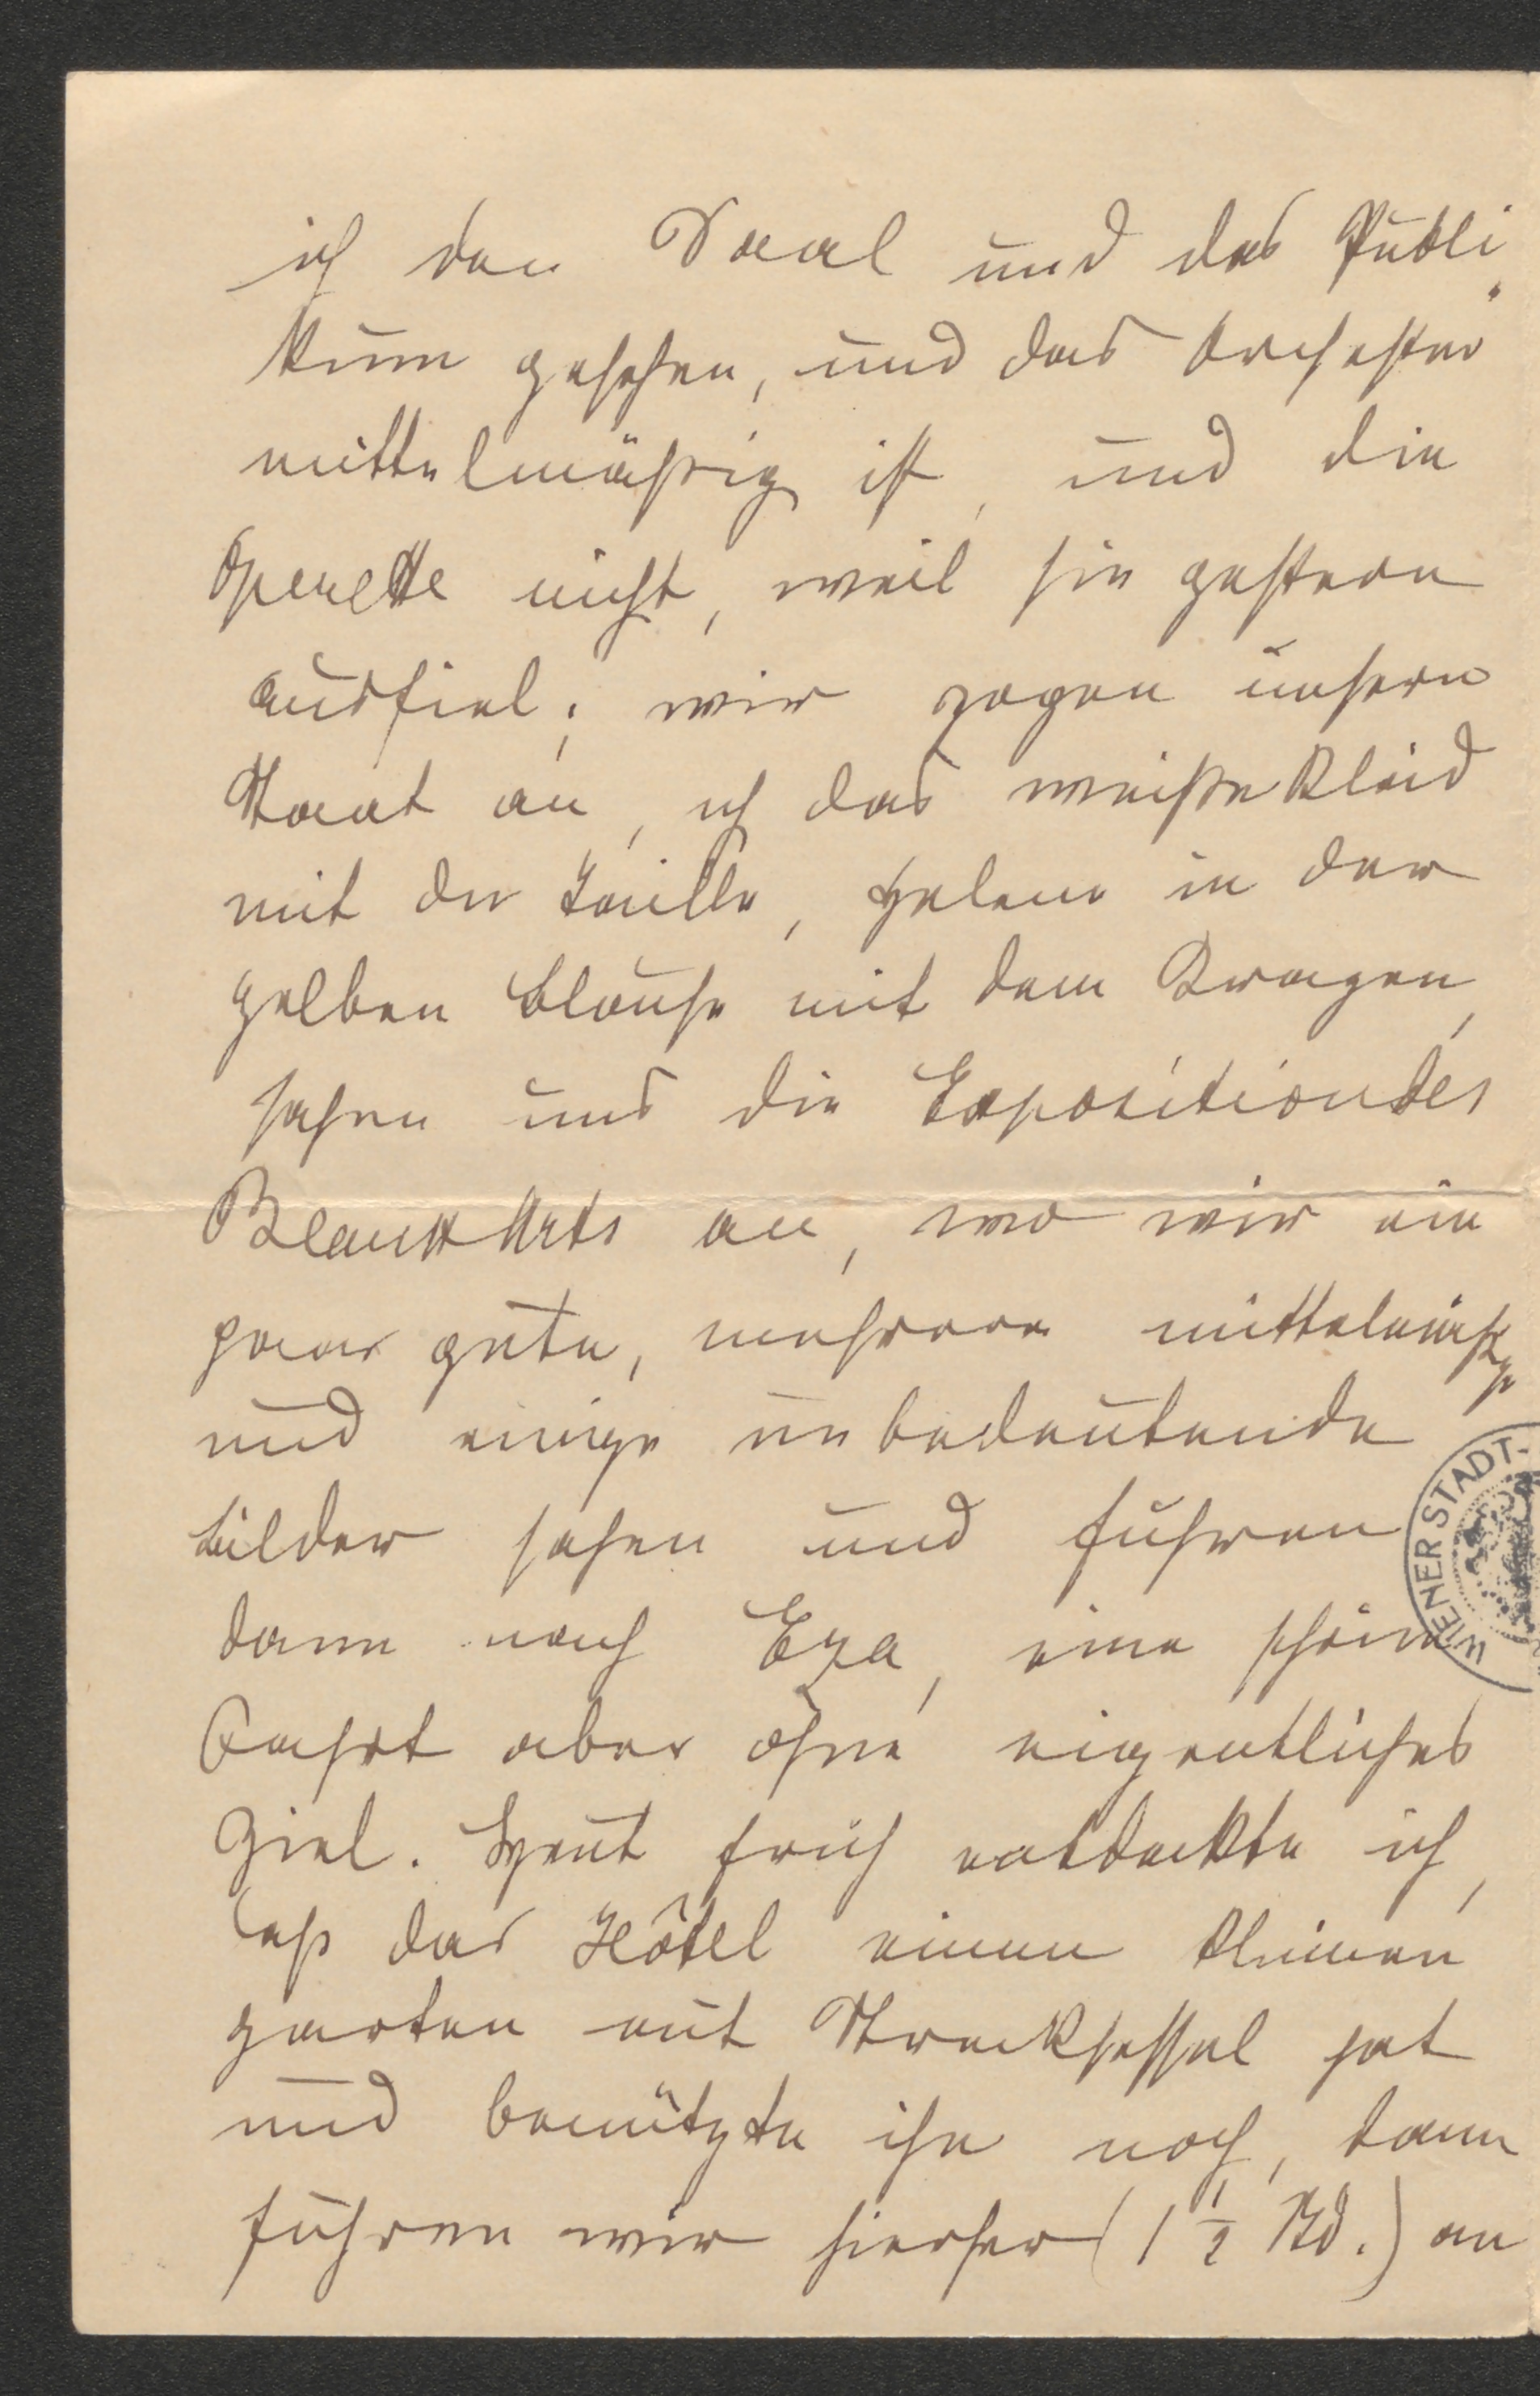 ich den Saal und das Publi
kum gesehen, und das Orchester
mittelmäßig ist, und die
Operette nicht, weil sie gestern
ausfiel; wir zogen unsern
Staat an, ich das weiße Kleid
mit der Taille, Helene in der
gelben Blouse mit dem Kragen,
sahen uns die Exposition des
Beaux Arts an, wo wir ein
paar gute, mehrere mittelmäßige
und einige unbedeutende
Bilder sahen und fuhren
dann nach Eza, eine schöne
Fahrt aber ohne eigentliches
Ziel. Heut früh entdeckte ich,
daß das Hôtel einen kleinen
Garten mit Strecksessel hat
und benützte ihn noch, dann
fuhren wir hierher (1 1/2 Std.) an
WIENER STADT-